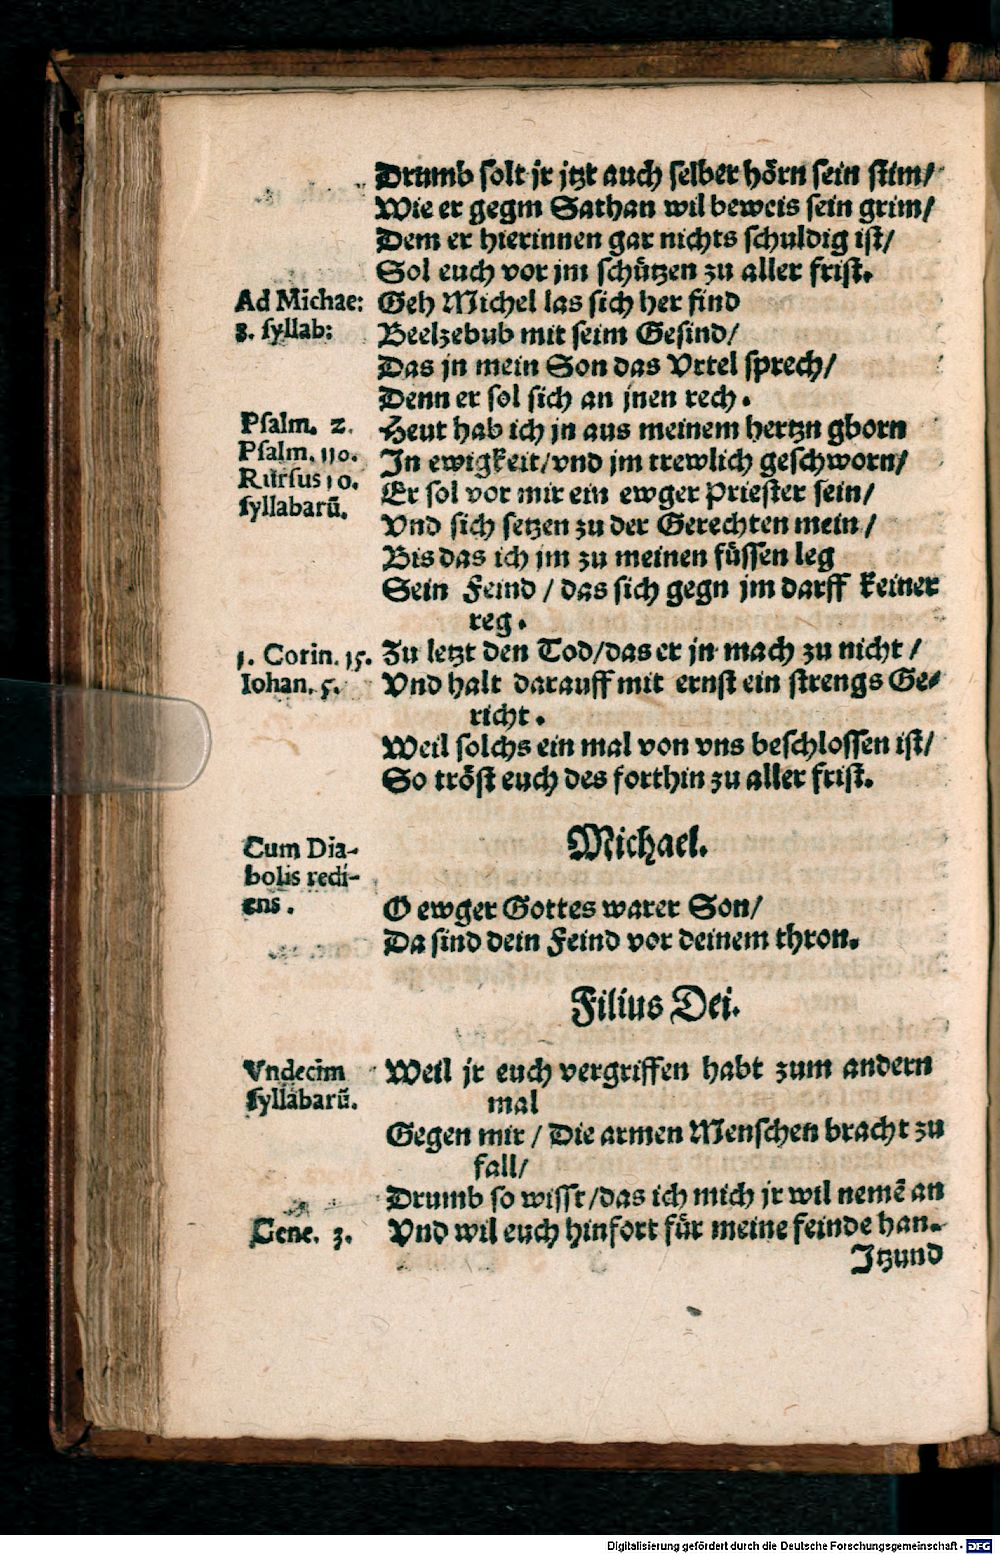 Drumb solt jr jtzt auch selber hörn sein stim/
Wie er gegm Sathan wil beweis sein grim/
Dem er hierinnen gar nichts schuldig ist/
Sol euch vor jm schützen zu aller frist.
Ad Michae:
8. syllab:
Geh Michel las sich her find
Beelzebub mit seim Gesind/
Das jn mein Son das Vrtel sprech/
Denn er sol sich an jnen rech.
Psalm. 2.
Psalm. 110.
Rursus 10.
syllabarū.
Heut hab ich jn aus meinem hertzn gborn
In ewigkeit/vnd jm trewlich geschworn/
Er sol vor mir ein ewger Priester sein/
Vnd sich setzen zu der Gerechten mein/
Bis das ich jm zu meinen füssen leg
Sein Feind/das sich gegn jm darff keiner
reg.
1. Corin. 15.
Iohan. 5.
Zu letzt den Tod/das er jn mach zu nicht/
Vnd halt darauff mit ernst ein strengs Ge-
richt.
Weil solchs ein mal von vns beschlossen ist/
So tröst euch des forthin zu aller frist.
Michael.
Cum Dia-
bolis redi-
ens.
O ewger Gottes warer Son/
Da sind dein Feind vor deinem thron.
Filius Dei.
Vndecim
syllabarū.
Weil jr euch vergriffen habt zum andern
mal
Gegen mir/Die armen Menschen bracht zu
fall/
Drumb so wisst/das ich mich jr wil nemē an
Gene. 3.
Vnd wil euch hinfort für meine feinde han.
Itzund
Digitalisierung gefördert durch die Deutsche Forschungsgemeinschaft - DFG